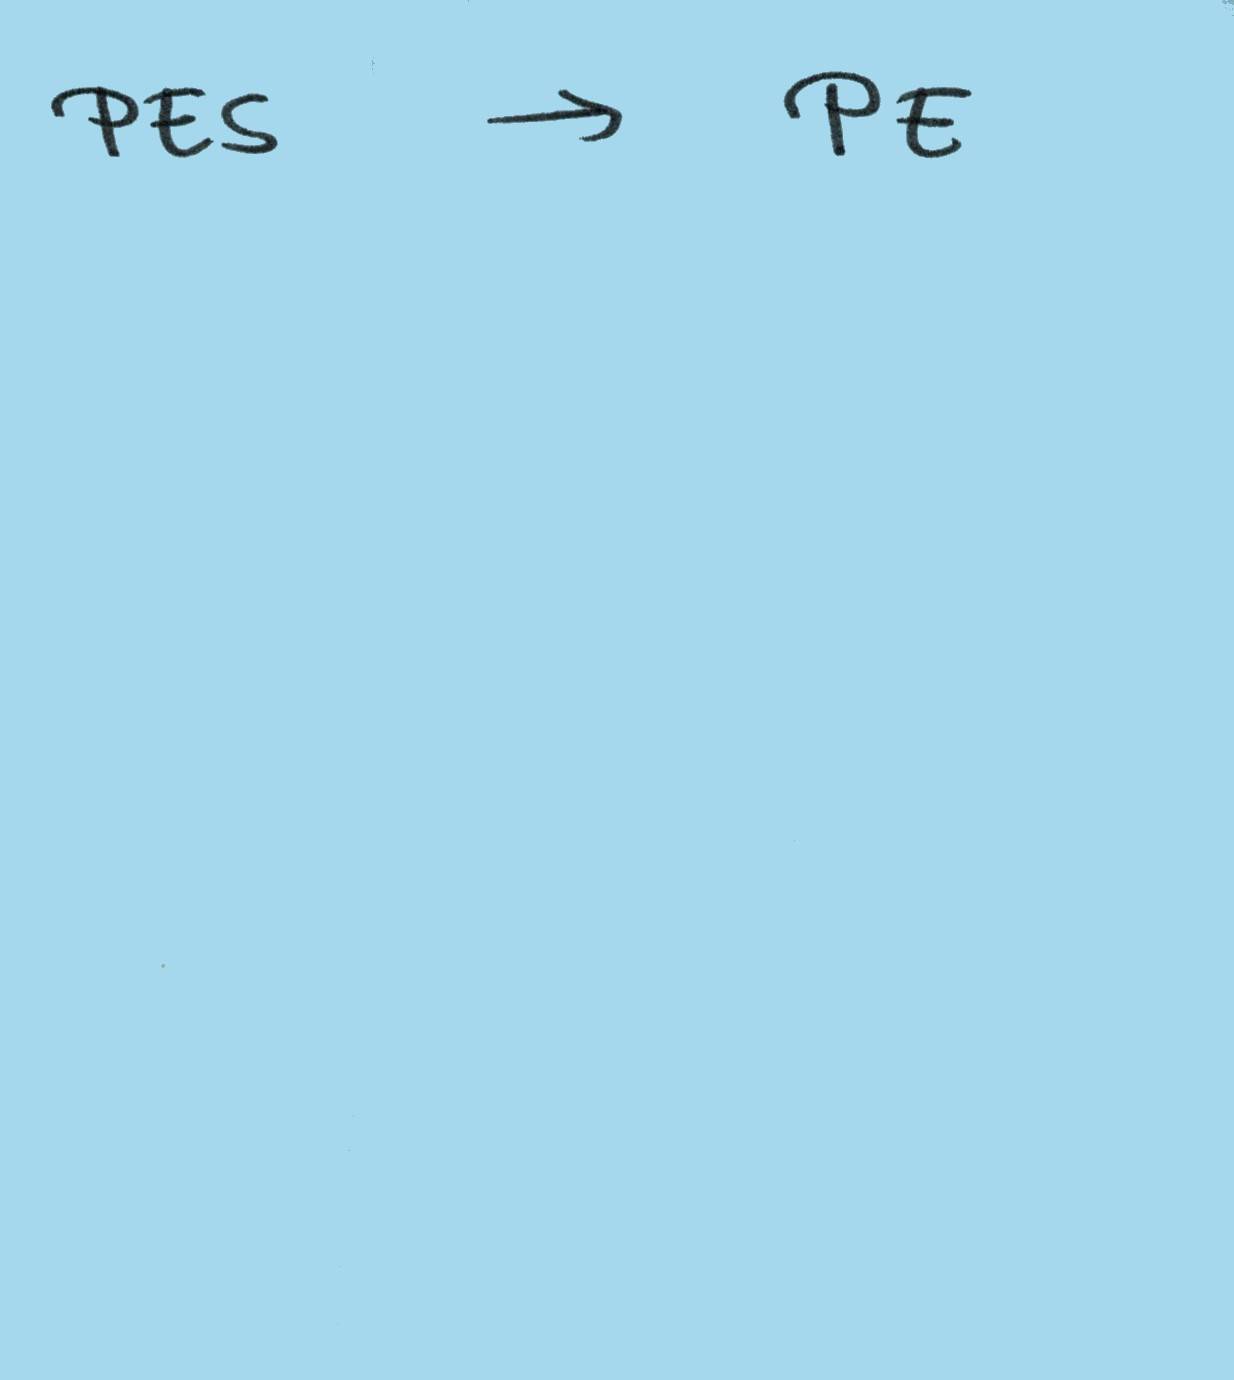 PES → PE